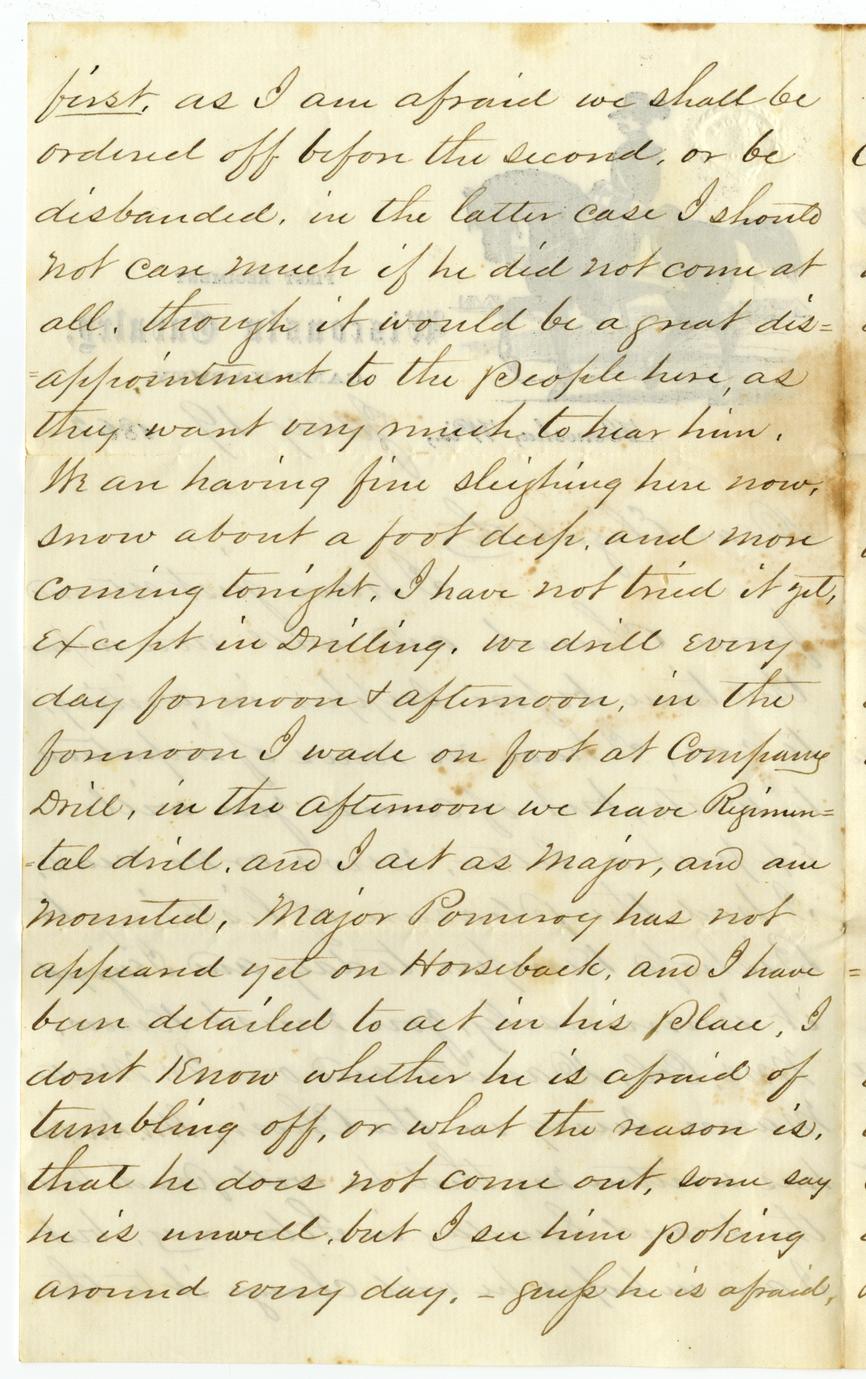 first, as I am afraid we shall be
ordered off before the second, or be
disbanded, in the latter case I should
not care much if he did not come at
all. though it would be a great dis=
=appointment to the People here, as
they want very much to hear him.
We are having fine sleighing here now,
snow about a foot deep, and more
coming tonight, I have not tried it yet,
Except in Drilling. we drill Every
day forenoon & afternoon, in the
forenoon I wade on foot at Company
Drill, in the afternoon we have Regimen=
=tal drill, and I act as Major, and am
mounted, Major Pomeroy has not
appeared yet on Horseback, and I have
been detailed to act in his Place, I
dont Know whether he is afraid of
tumbling off, or what the reason is,
that he does not come out, some say
he is unwell, but I see him poking
around every day. - guess he is afraid,